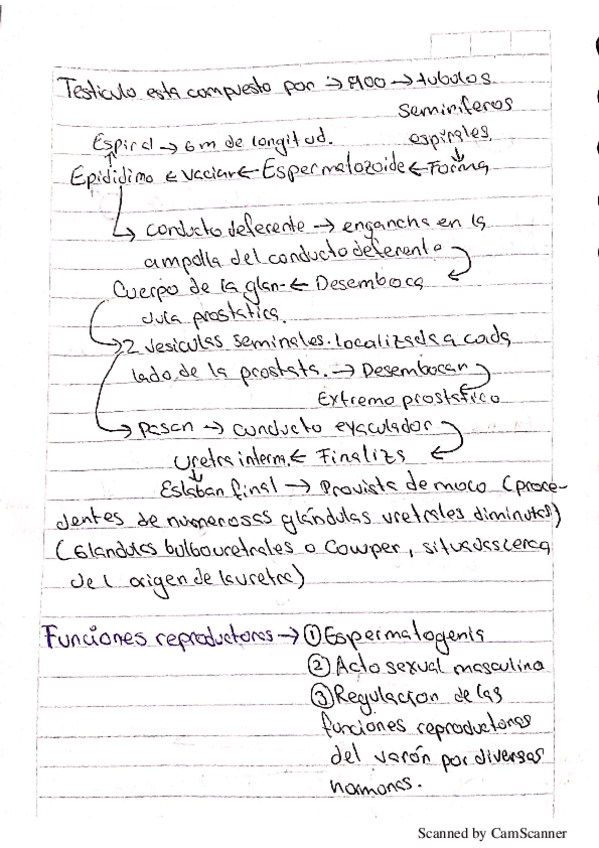 Testiculo esta compuesto por :→ 900 → tubulos
seminiferos
Espiral → 6 m de longitud. espirales.
Epididimo ← vaciar ← Espermatozoide ← Forma
↳ conducto deferente → engancha en la
ampolla del conducto deferente
Cuerpo de la glan- ← Desemboca
dula prostatica.
→ 2 vesiculas seminales. localizada a cada
lado de la prostata. → Desembocan
Extremo prostatico
→ pasan → conducto eyaculador
Uretra interna. ← Finaliza
Eslabon final → Provista de moco (proce-
dentes de numerosas glándulas uretrales diminutas)
(Glandulas bulbouretrales o Cowper, situadas cerca
de l origen de la uretra)
Funciones reproductoras → ① Espermatogenis
② Acto sexual masculina
③ Regulacion de las
funciones reproductoras
del varón por diversas
hormonas.
Scanned by CamScanner